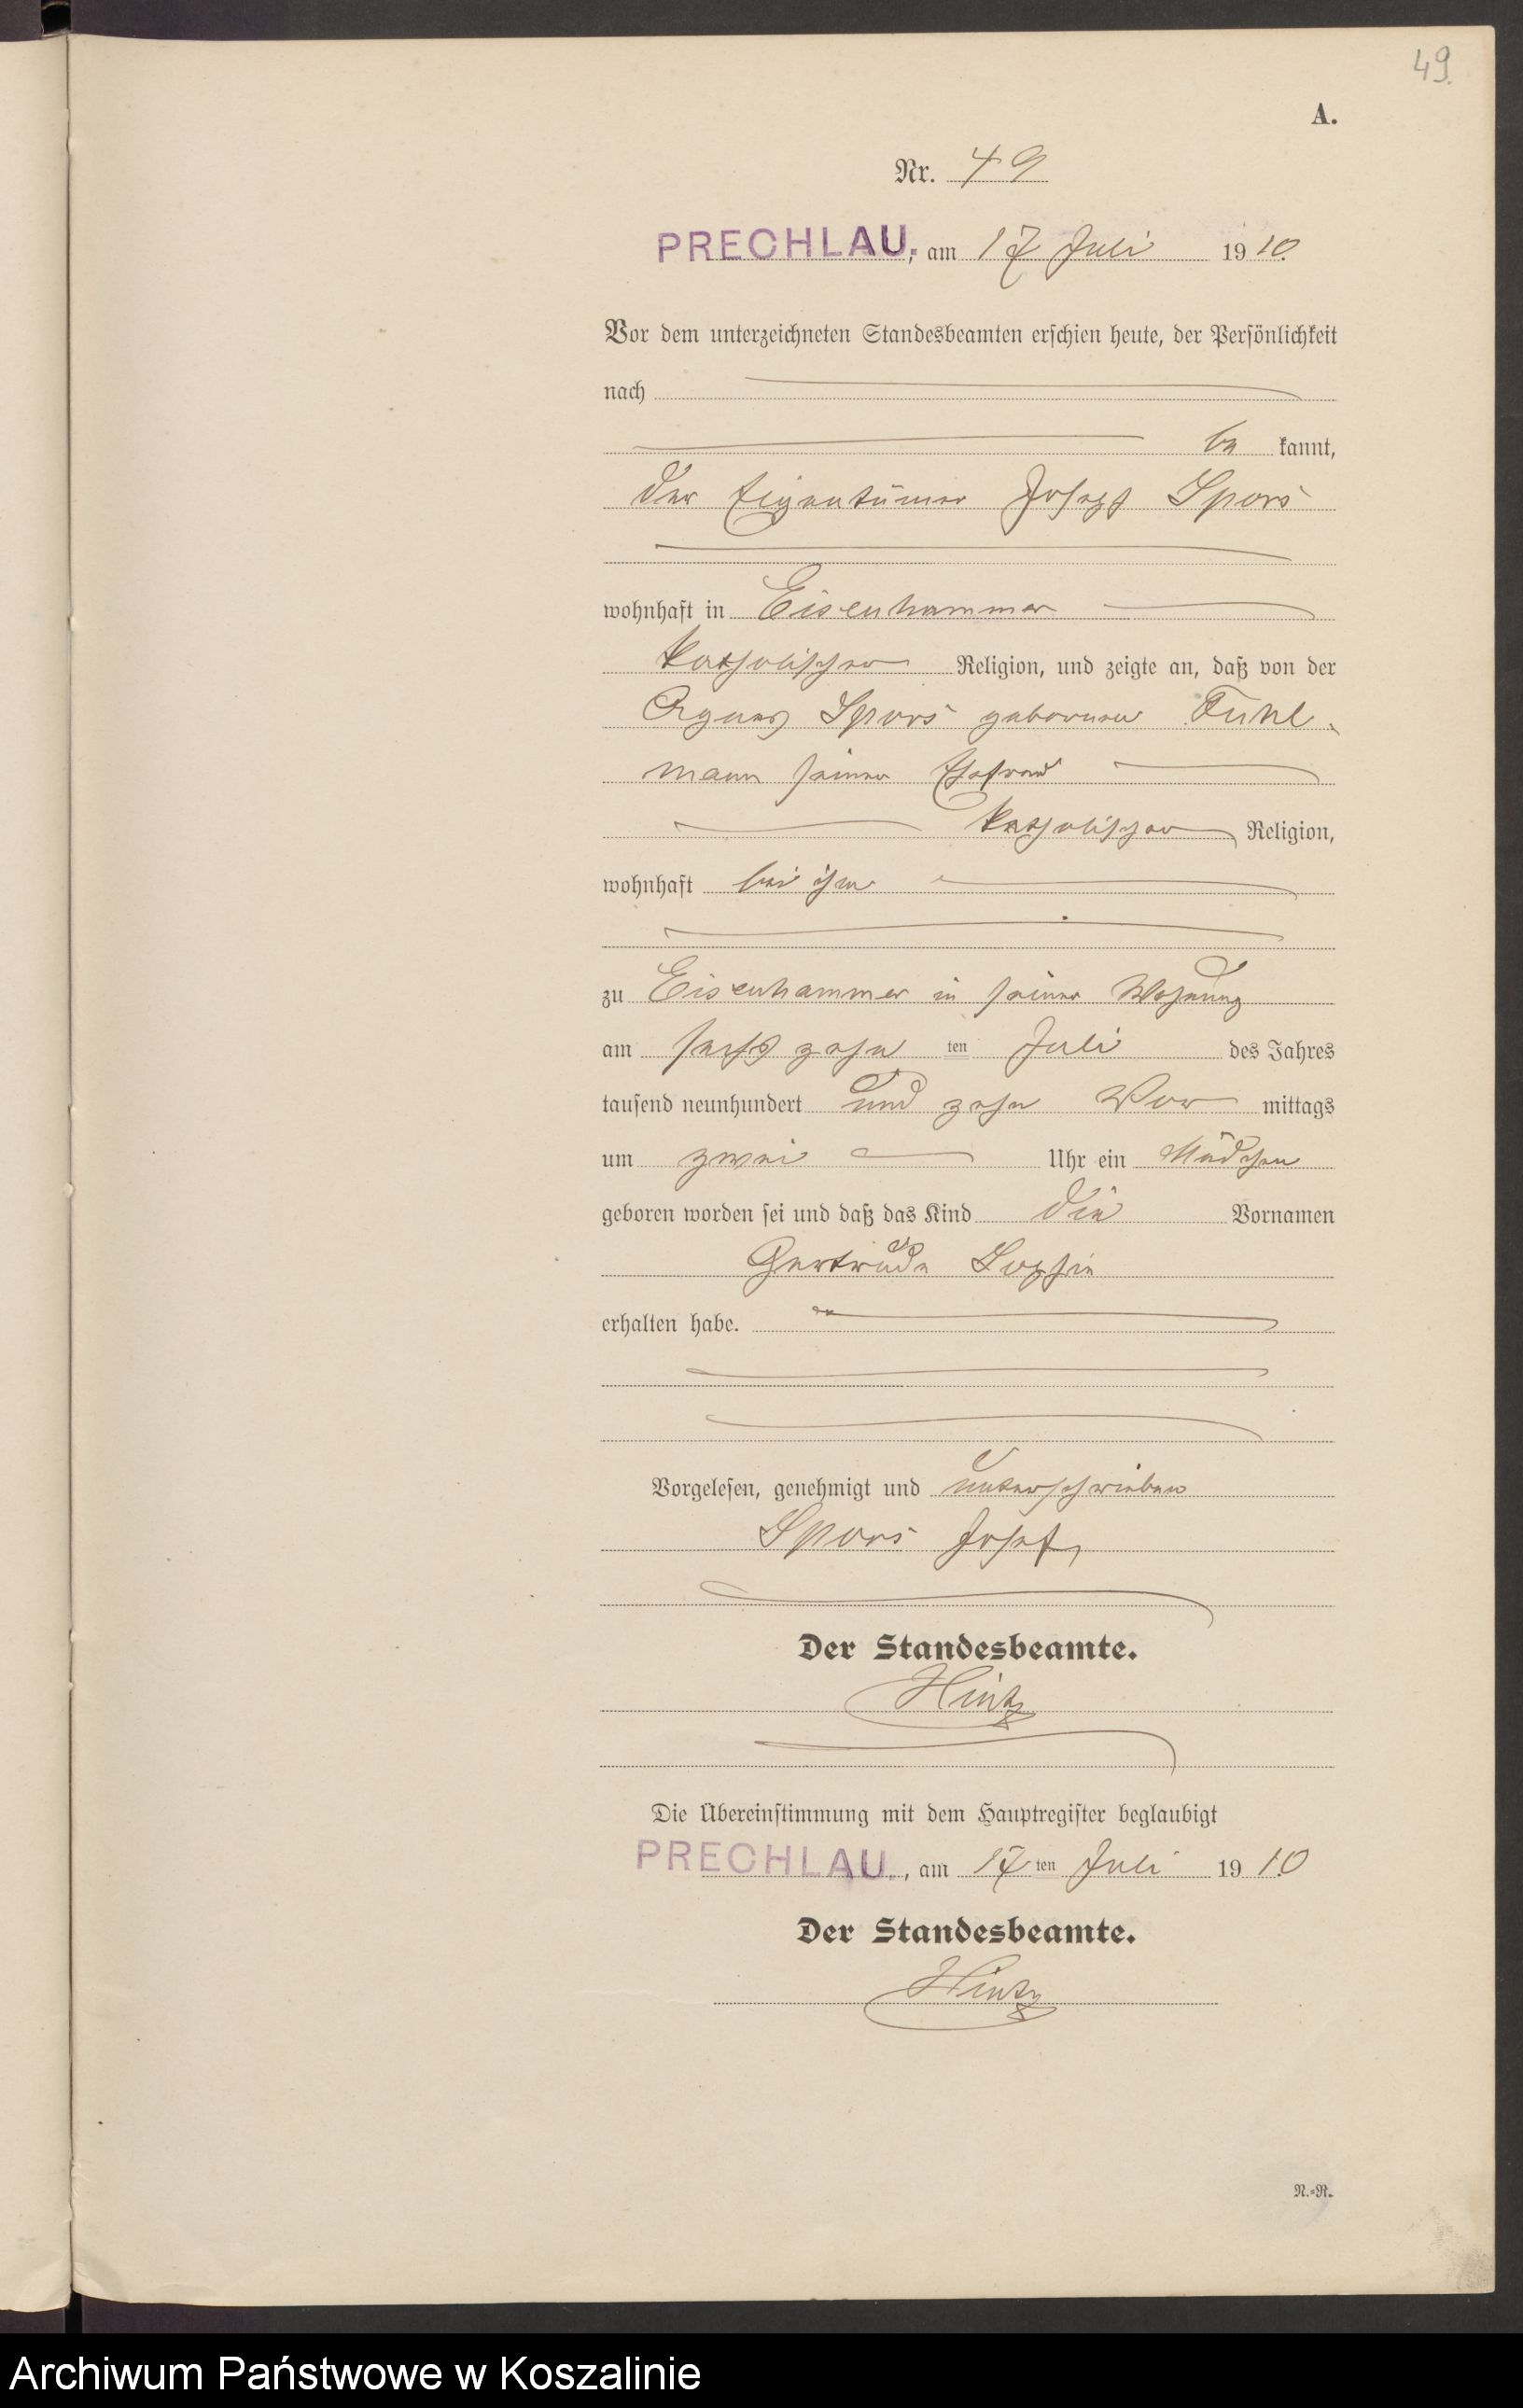 49.
A.
Nr. 49
PRECHLAU., am 17 Juli 1910.
Vor dem unterzeichneten Standesbeamten erschien heute, der Persönlichkeit
nach
be kannt,
der Eigentümer Joseph Spors
wohnhaft in Eisenhammer
katholischer Religion, und zeigte an, daß von der
Agnes Spors geborenen
mann seiner Ehefrau
katholischer Religion,
wohnhaft bei ihm
zu Eisenhammer in seiner Wohnung
am sechszehn ten Juli des Jahres
tausend neunhundert und zehn Vor mittags
um zwei Uhr ein Mädchen
geboren worden sei und daß das Kind die Vornamen
Gertrude Sophie
erhalten habe.
Vorgelesen, genehmigt und unterschrieben
Spors Josef
Der Standesbeamte.
Hintz
Die Übereinstimmung mit dem Hauptregister beglaubigt
PRECHLAU., am 17 ten Juli 1910
Der Standesbeamte.
Hintz
N.=R.
Archiwum Państwowe w Koszalinie